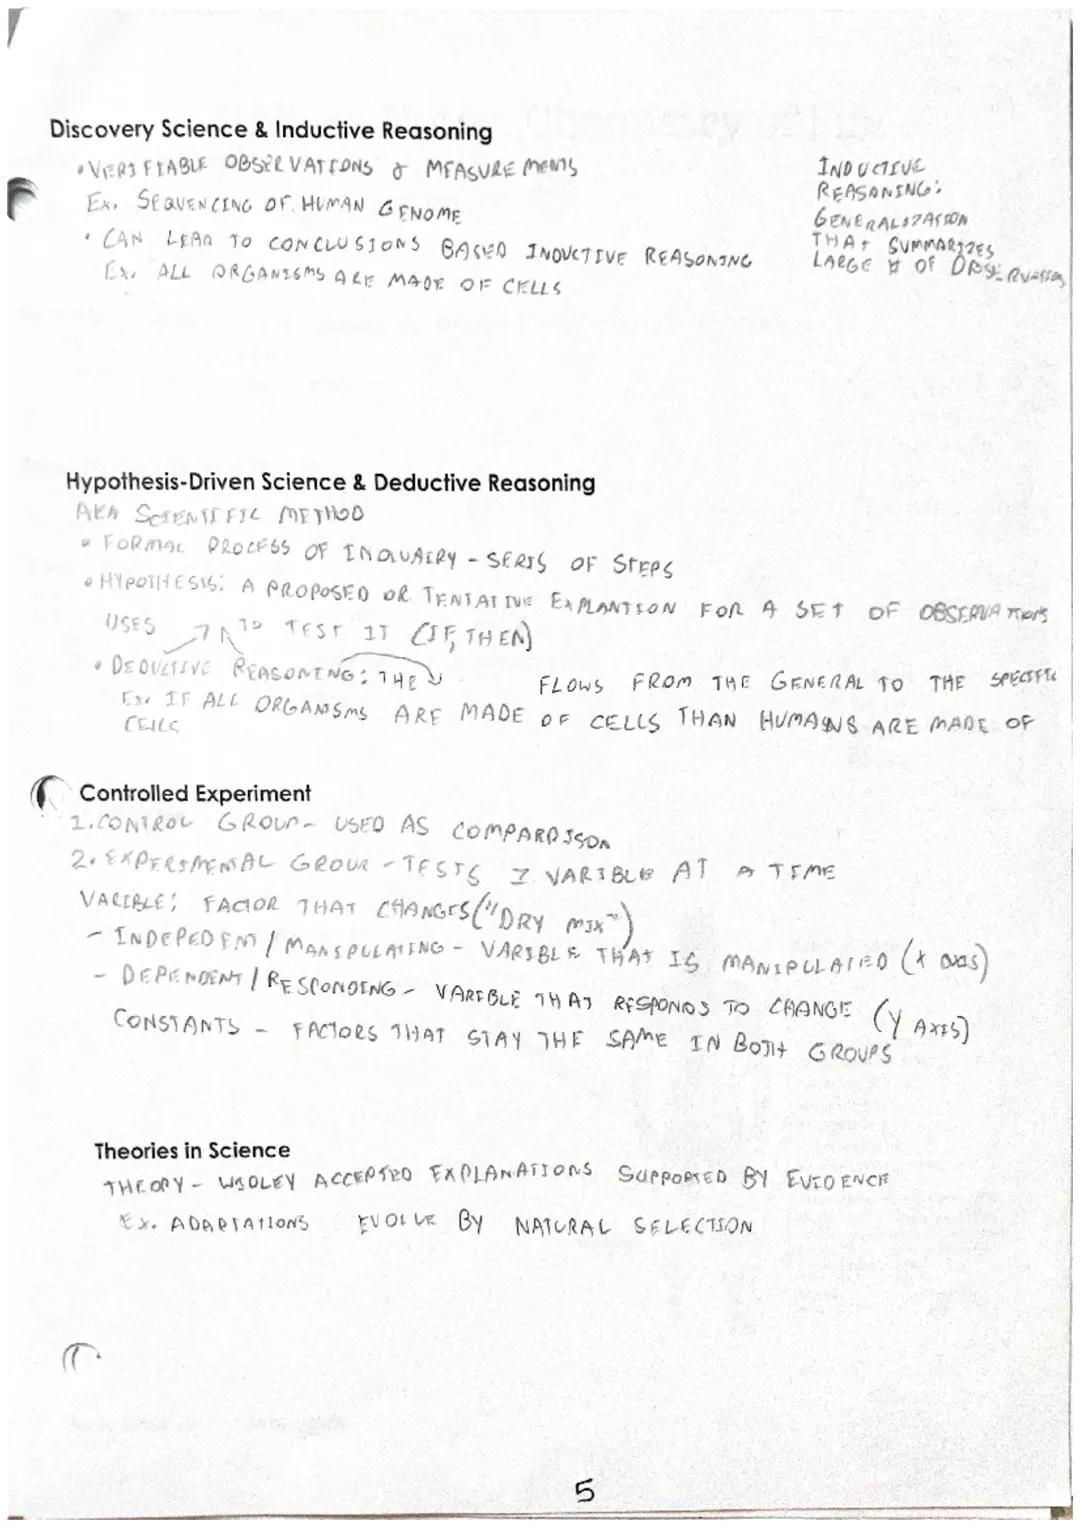 Discovery Science & Inductive Reasoning
• VERIFIABLE OBSERVATIONS & MEASUREMENTS
EX. SEQUENCING OF HUMAN GENOME
• CAN LEAD TO CONCLUSIONS BASED INDUCTIVE REASONING
EX. ALL ORGANISMS ARE MADE OF CELLS
INDUCTIVE
REASONING:
GENERALIZATION
THAT SUMMARIZES
LARGE # OF OBSERVATIONS
Hypothesis-Driven Science & Deductive Reasoning
AKA SCIENTIFIC METHOD
• FORMAL PROCESS OF INQUAIRY - SERIS OF STEPS
• HYPOTHESIS: A PROPOSED OR TENTATIVE EXPLANTION FOR A SET OF OBSERVATIONS
USES TO TEST IT (IF, THEN)
• DEDUCTIVE REASONING: THE FLOWS FROM THE GENERAL TO THE SPECIFIC
EX. IF ALL ORGANISMS ARE MADE OF CELLS THAN HUMANS ARE MADE OF
CELLS
Controlled Experiment
1. CONTROL GROUP - USED AS COMPARDISON
2. EXPERIMENTAL GROUP - TESTS 1 VARIBLE AT A TIME
VARIBLE: FACTOR THAT CHANGES ("DRY MIX")
- INDEPEDENT / MANIPULATING - VARIBLE THAT IS MANIPULATED (X AXIS)
- DEPENDENT / RESPONDING - VARIBLE THAT RESPONDS TO CHANGE (Y AXIS)
CONSTANTS - FACTORS THAT STAY THE SAME IN BOTH GROUPS
Theories in Science
THEORY - WIDLEY ACCEPTED EXPLANATIONS SUPPORTED BY EVIDENCE
EX. ADAPTATIONS EVOLVE BY NATURAL SELECTION
5